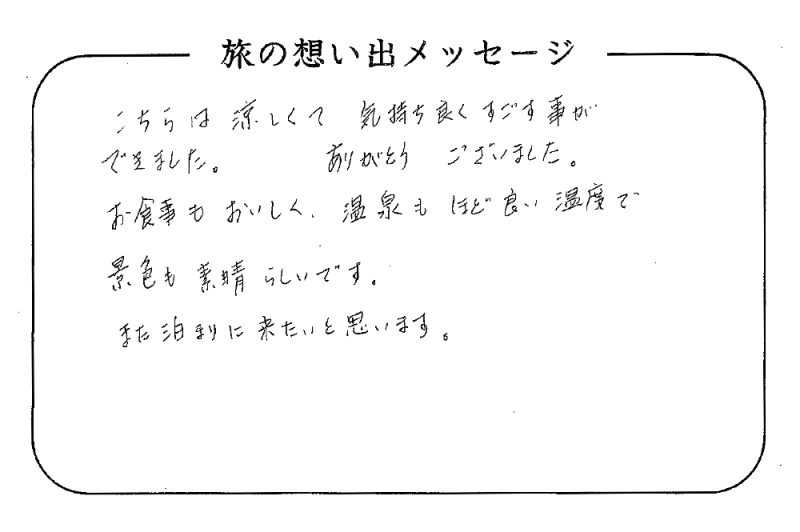 旅の想い出メッセージ
こちらは 涼しくて 気持ち良く すごす事が
できました。 ありがとう ございました。
お食事も おいしく、温泉も ほど良い 温度で
景色も 素晴らしいです。
また 泊まりに 来たいと思います。